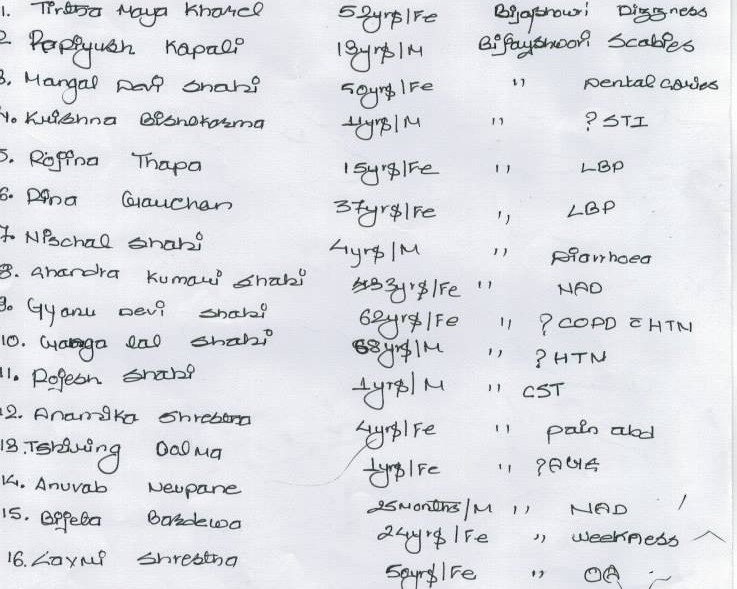 1. Tirtha Maya Kharel 52yrs/Fe Bijayshowri Dizzness
2 Papiyush Kapali 13yrs/M Bijayshwori Scabies
3. Mangal Devi Shahi 50yrs/Fe " Dental caries
4. Krishna Bishokarma 1yrs/M " ? STI
5. Rojina Thapa 15yrs/Fe " LBP
6. Dina Gauchan 37yrs/Fe " LBP
7. Nischal Shahi 4yrs/M " Diarrhoea
8. Chandra Kumari Shahi 33yrs/Fe " NAD
9. Gyanu Devi Shahi 62yrs/Fe " ? COPD c̄ HTN
10. Ganga Lal Shahi 68yrs/M " ? HTN
11. Rojesh Shahi 1yrs/M " CST
12. Anamika Shrestha 4yrs/Fe " pain abd
13. Tshiring Dolma 1yrs/Fe "
14. Anuvab Neupane 25Months/M " NAD
15. Bijeta Bardewa 24yrs/Fe " weekness
16. Laxmi Shrestha 50yrs/Fe " OA